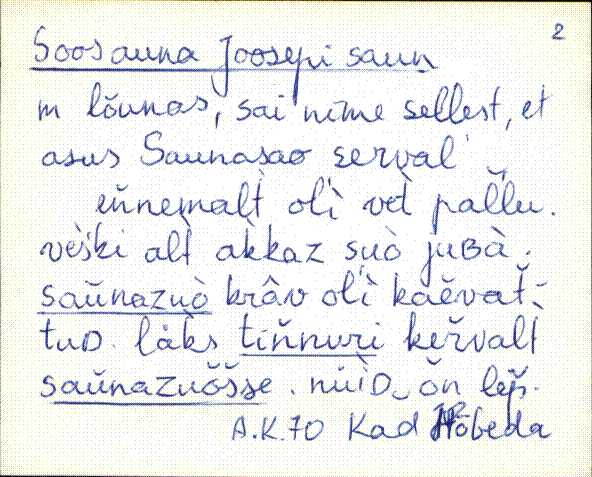 2
Soosauna Joosepi saun
m lõunas, sai nime sellest, et
asus Saunasoo serval
eňnemalt̀ olì vèt̀ pal̆l̆u.
vèški alt̀ àkkaz suò juʙà.
saŭnazuò krâv olì kaěvat̆-
tuᴅ. làks tiňnuri keřvalt̀
saŭnazuŏs̆s̆e. nŭìᴅ ŏn
A.K. 70 Kad Hõbeda